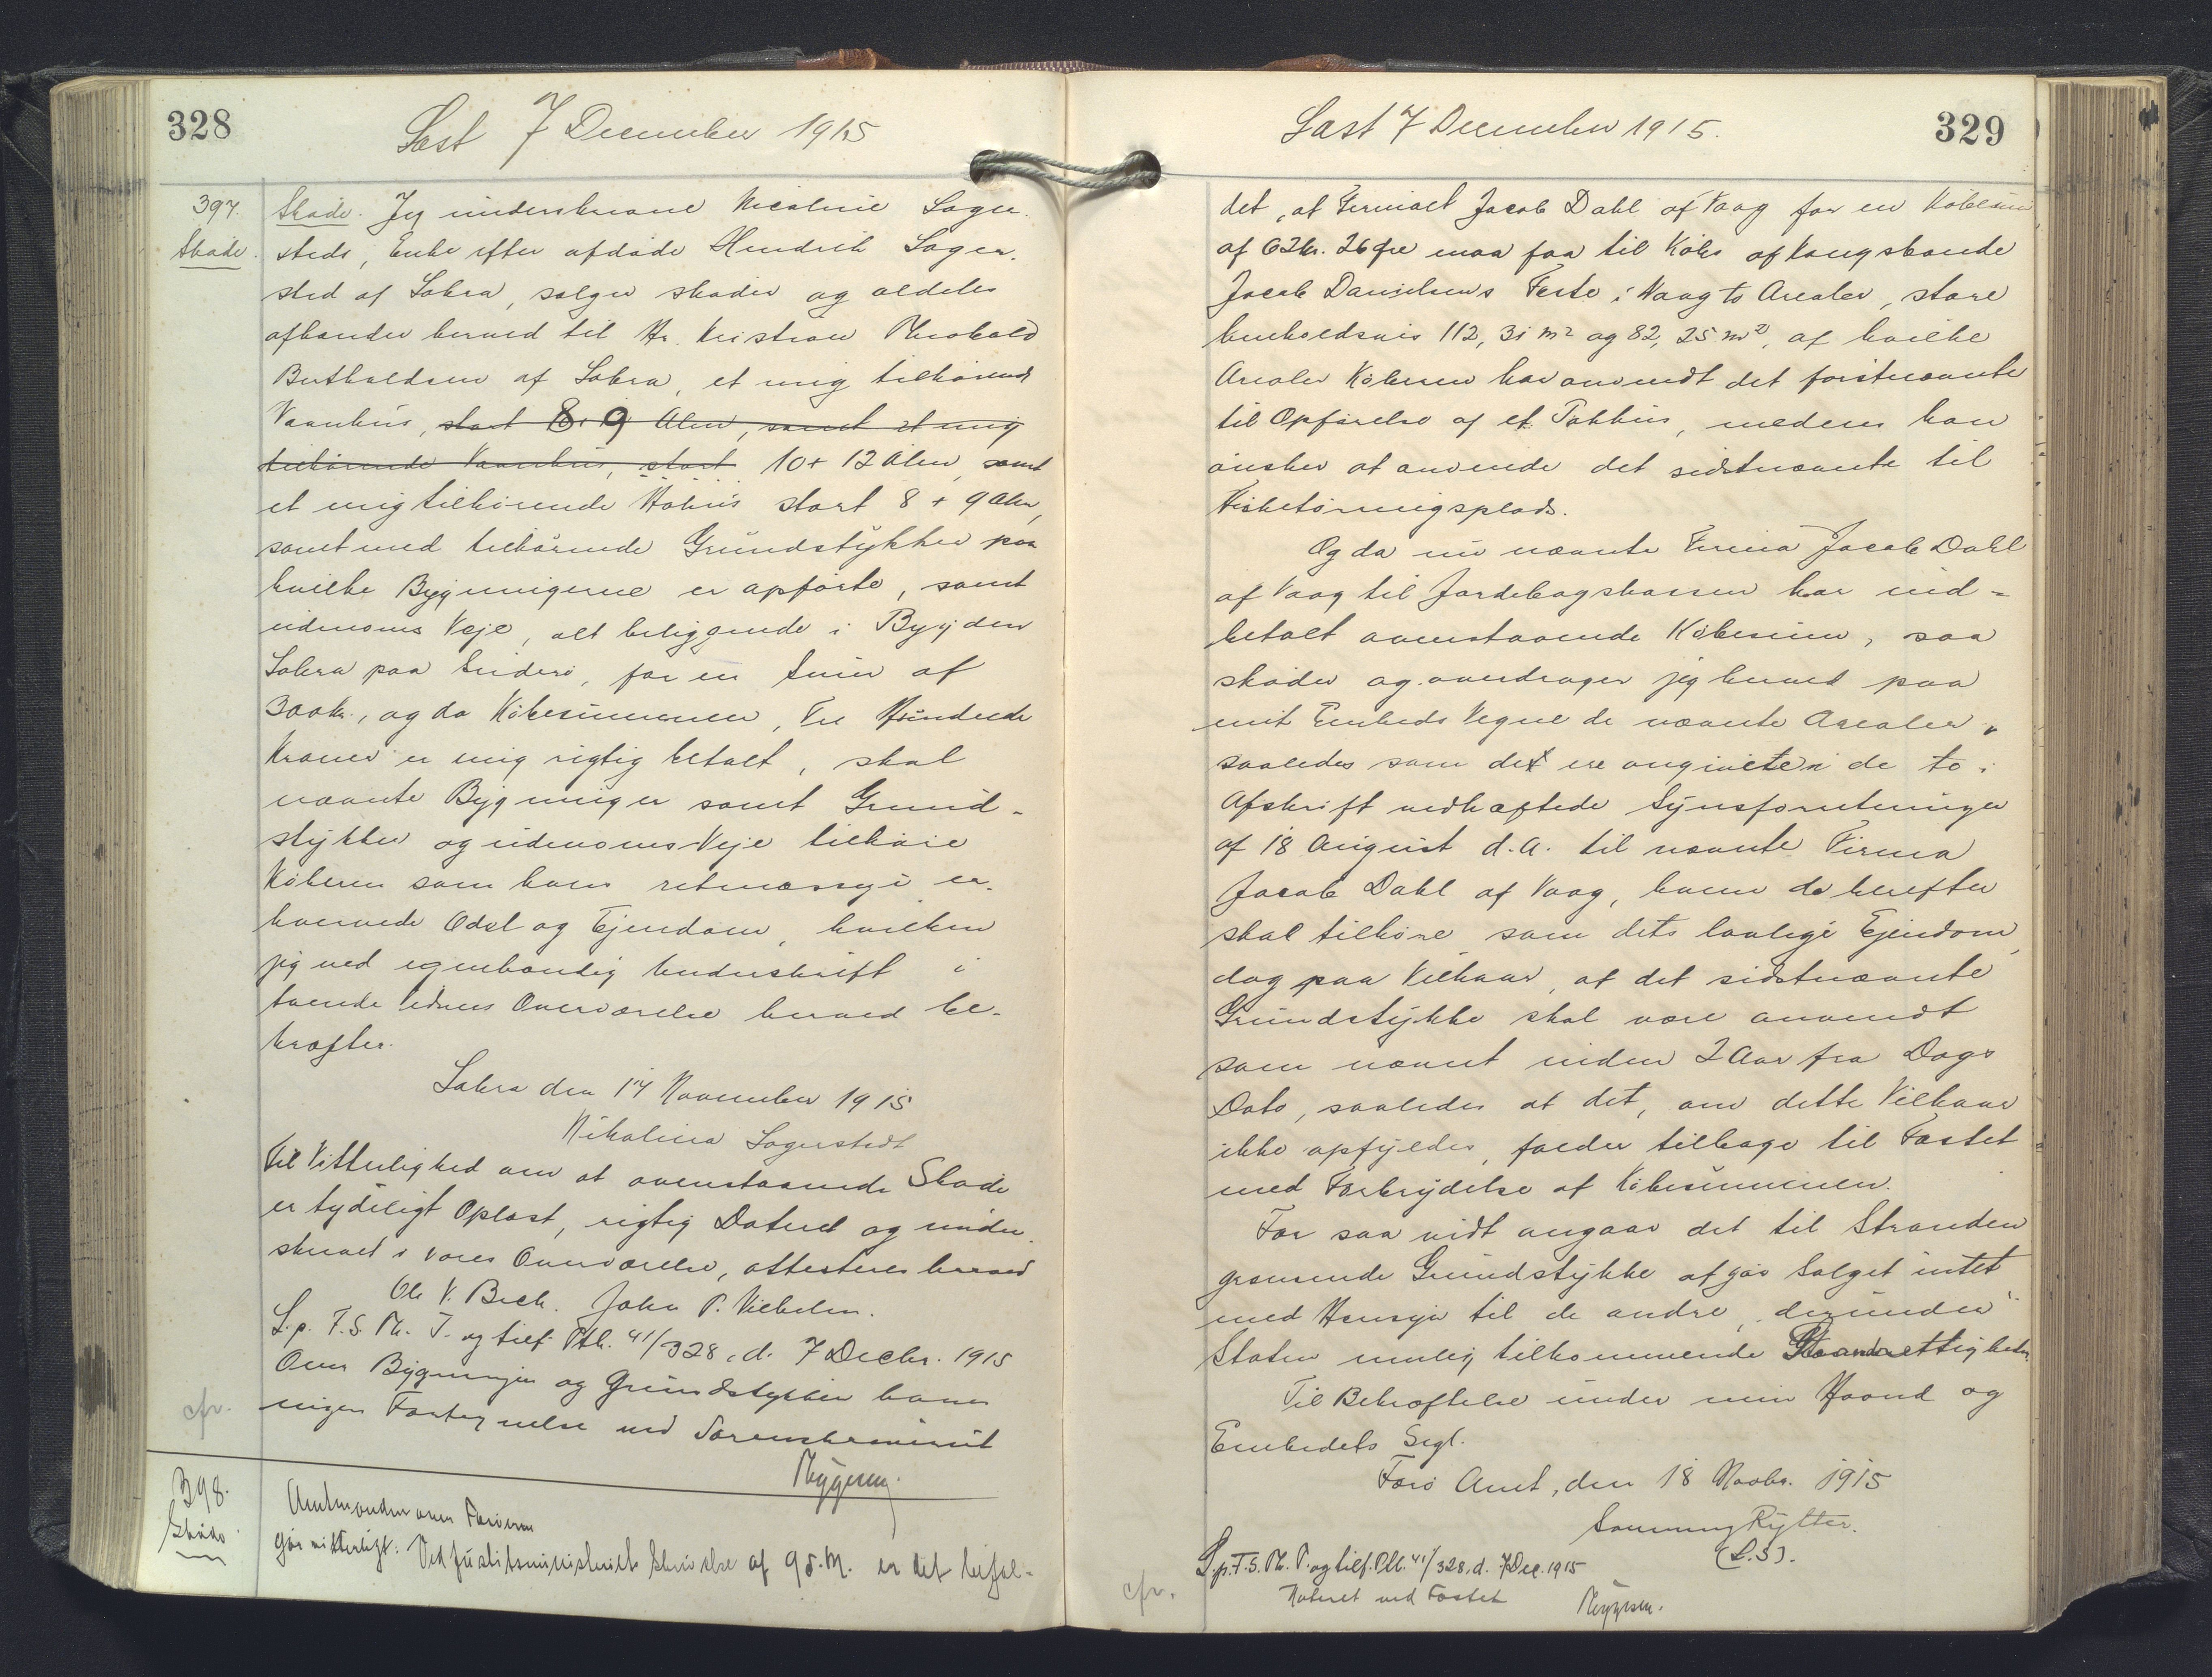 328
Læst 7 December 1915
397.
Skøde.
Skøde. Jeg underskrevne Nicoline Lager-
stedt, Enke efter afdøde Hendrik Lager-
sted af Sobra, sælger skøder og aldeles
afhænder herved til Hr. Kristian Theobald
Bertholdsen af Sobra, et mig tilhørende
Vaanhus, stort 8 . 9 Alen, samt et mig
tilhørende Vaanhus, stort 10 + 12 Alen, samt
et mig tilhørende Høhus stort 8 + 9 Alen,
samt med tilhørende Grundstykker paa
hvilke Bygningerne er opførte, samt
udenoms Veje, alt beliggende i Bygden
Sobra paa Suderø, for en Sum af
300 Kr., og da Købesummen, Tre Hundrede
Kroner er mig rigtig betalt, skal
nævnte Bygninger samt Grund-
stykker og udenoms Veje tilhøre
Køberen som hans retmæssige er-
hvervede Odel og Ejendom, hvilken
jeg ved egenhændig Underskrift i
tvende Vidners Overværelse herved be-
kræfter.
Sobra den 17 November 1915
Nikolina Lagerstedt
Til Vitterlighed om at ovenstaaende Skøde
er tydeligt Oplæst, rigtig Dateret og under-
skrevet i vores Overværelse, attesteres herved
Ole V. Bech. John P. Vilhelm.
L. p. F. S. Th. T. og tilf. Ptk. 41/328, d. 7 Decbr. 1915
Over Bygningen og Grundstykken haves
ingen Fortegnelse ved Sorenskriveriet
cfr.
398.
Skøde
Amtmanden over Færøerne
Gør vitterligt: Ved Justitsministeriets Skrivelse af 9 d. M. er det bifal-
329
Læst 7 December 1915.
det, at Firmaet Jacob Dahl af Vaag for en Købesum
af 62 kr. 26 Øre maa faa til Købs af Kongsbonde
Jacob Danielsens Fæste i Vaag to Arealer, store
henholdsvis 112,31 m² og 82,25 m², af hvilke
Arealer Køberen har anvendt det førstnævnte
til Opførelse af et Pakhus, medens han
ønsker at anvende det sidstnævnte til
Fisketørringsplads.
Og da nu nævnte Firma Jacob Dahl
af Vaag til Jordebogskassen har ind-
betalt ovenstaaende Købesum, saa
skøder og overdrager jeg herved paa
mit Embeds Vegne de nævnte Arealer,
saaledes som det ere angivet i de to i
Afskrift vedhæftede Synsforretninger
af 18 August d. A. til nævnte Firma
Jacob Dahl af Vaag, hvem de herefter
skal tilhøre som dets lovlige Ejendom,
dog paa Vilkaar, at det sidstnævnte
Grundstykke skal være anvendt
som nævnt inden 2 Aar fra Dags
Dato, saaledes at det, om dette Vilkaar
ikke opfyldes, falder tilbage til Fæstet
med Fortrydelse af Købesummen.
For saa vidt angaar det til Stranden
grænsende Grundstykke afgør Salget intet
med Hensyn til de andre, derunder
Staten mulig tilkommende Strandrettigheder.
Til Bekræftelse under min Haand og
Embedets Segl.
Færø Amt, den 18 Novbr. 1915
Svenning Rytter.
(L.S).
L. p. F. S. Th. T. og tilf. Ptk. 41/328, d. 7 Dec. 1915
Noteret ved Fæstet
cfr.